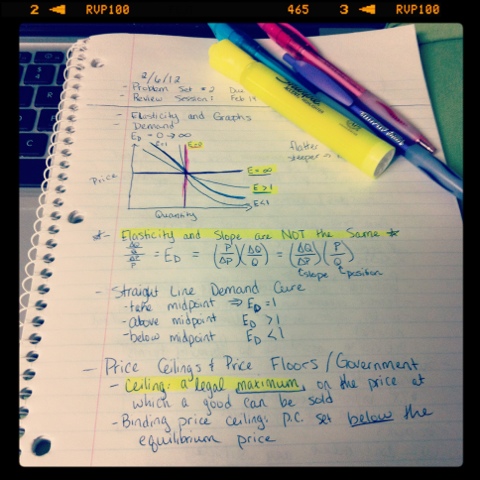 2 RVP100 465 3 RVP100
2/6/12
- Problem Set #2 Due
Review Session: Feb 14
- Elasticity and Graphs
- Demand
E_D = 0 → ∞
E=1 E=0
E = ∞
E>1
E<1
Price
Quantity
flatter
steeper
* Elasticity and Slope are NOT the Same *
ΔQ/Q / ΔP/P = E_D = (P/ΔP)(ΔQ/Q) = (ΔQ/ΔP)(P/Q)
slope position
- Straight Line Demand Cure
- take midpoint ⇒ E_D = 1
- above midpoint E_D > 1
- below midpoint E_D < 1
- Price Ceilings & Price Floors / Government
- Ceiling: a legal maximum on the price at
which a good can be sold
- Binding price ceiling: p.c. set below the
equilibrium price